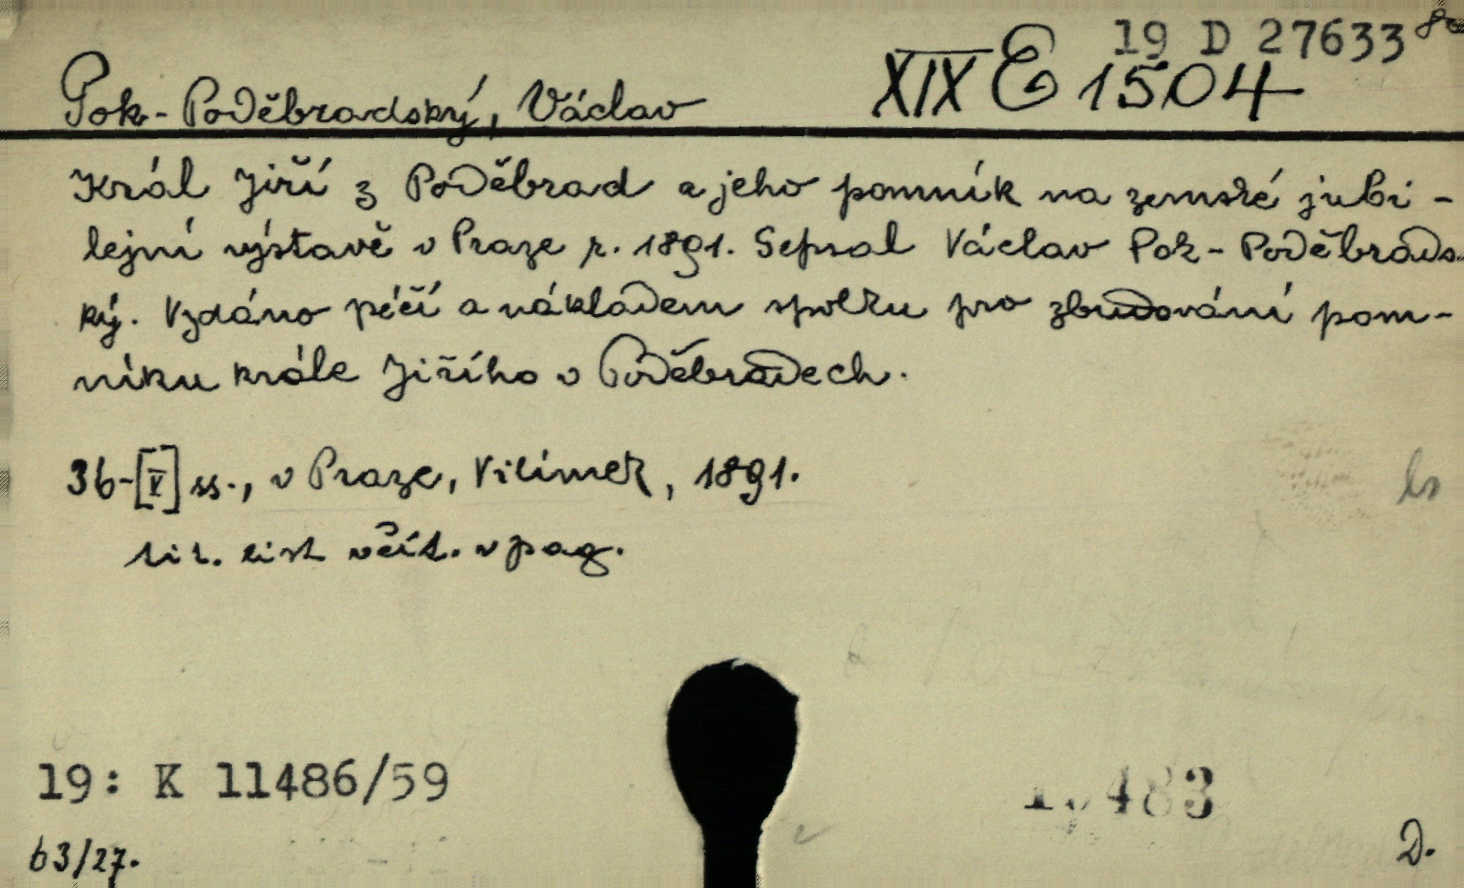 19 D 27633
Pok-Poděbradský, Václav XIX E 1504
Král Jiří z Poděbrad a jeho pomník na zemské jubi-
lejní výstavě v Praze r. 1891. Sepsal Václav Pok-Poděbrads-
ký. Vydáno péčí a nákladem spolku pro zbudování pom-
níku krále Jiřího v Poděbradech.
36-[V] ss., v Praze, Vilímek, 1891.
tit. list včít. v pag.
19: K 11486/59
63/27.
D.